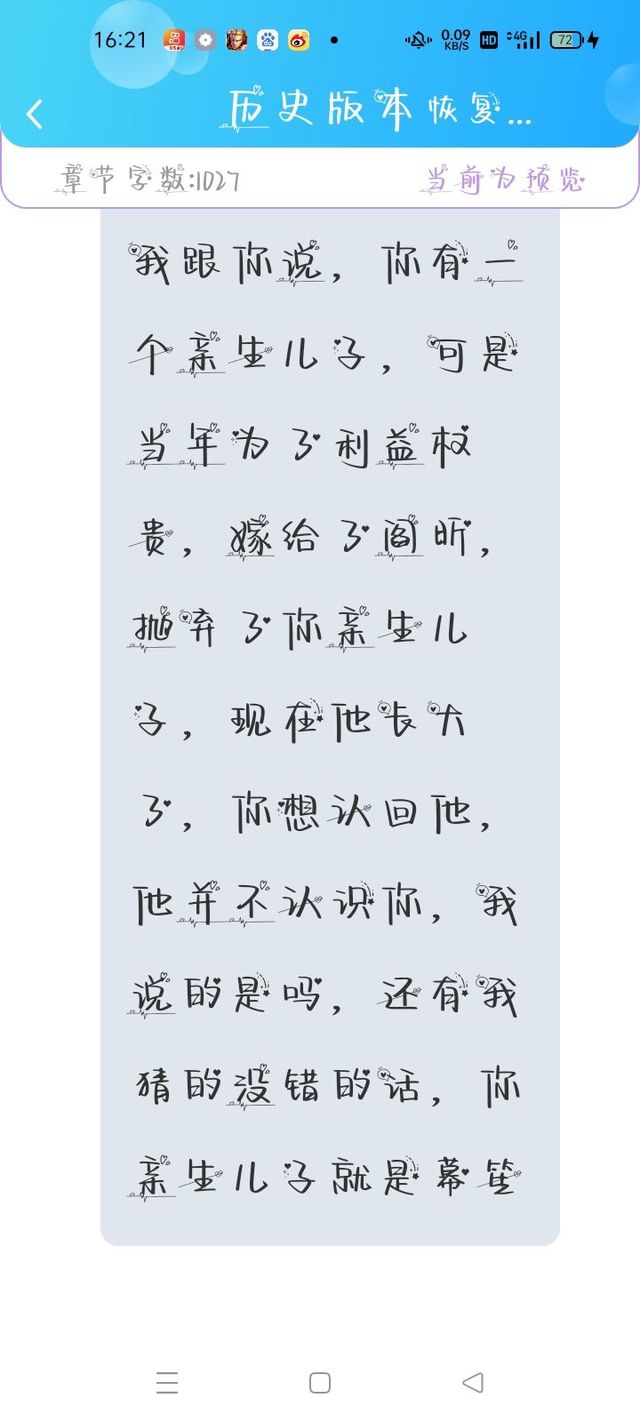 16:21
0.09
KB/S
HD
4G
72
历史版本恢复...
章节字数:1027
当前为预览
我跟你说，你有一
个亲生儿子，可是
当年为了利益权
贵，嫁给了阎昕，
抛弃了你亲生儿
子，现在他长大
了，你想认回他，
他并不认识你，我
说的是吗，还有我
猜的没错的话，你
亲生儿子就是幕笙